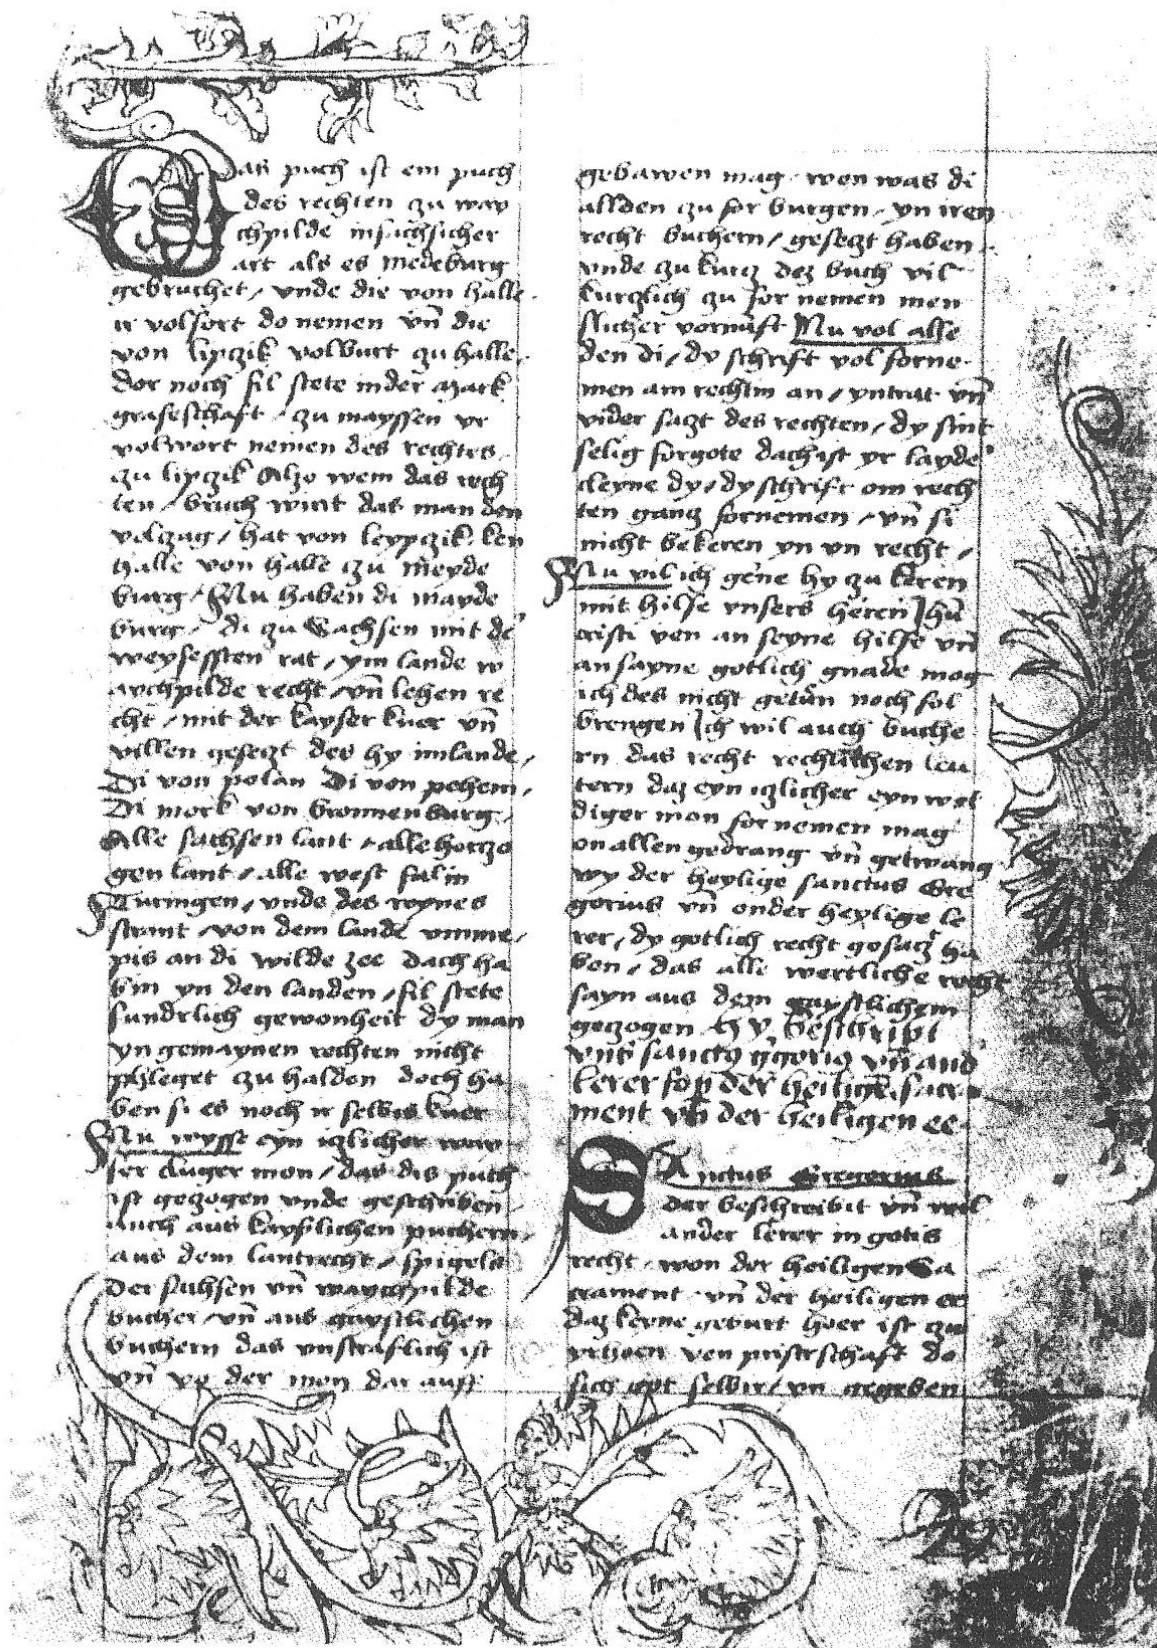 Das puch ist ein puch
des rechten zu way
chpilde in sichsicher
art als es medeburg
gebruchet / vnde die von halle
ir volfort do nemen vn̄ die
von lipczik volburt zu halle
dor noch fil stete in der mark
grafeschaft / zu mayssen yr
volwort nemen des rechtes
zu lipczik Alzo wem das rech
ten / bruch wirt das man den
volczug / hat von leypczik ken
halle von halle zu meyde
burg / Nu haben di mayde
burg / di zu Sachsen mit der
weysessten rat / ym lande w
aychpilde recht / vn̄ lehen re
cht / mit der kayser kuer vn̄
villen gesetzt des hy im lande /
Di von polan Di von pehem /
Di mork von bronnenburg /
Alle sachsen lant / alle herczo
gen lant / alle west falin
Turingen / vnde des reynes
strant / von dem lande vmme /
pis an di wilde zee Dach ha
bin yn den landen / fil stete
sundrlich gewonheit dy man
yn gemaynen rechten nicht
phleget zu halden doch ha
ben si es noch ir selbis kuer
Nu wysst eyn iczlicher vor
ser kluger mon / das dis puch
ist geczogen vnde geschriben
auch aus kayslichen puchern /
aus dem lantrecht / spigels
Der sachsen vn̄ waychpilde
bucher / vn̄ aus gaystlichen
buchern das vnstraflich ist
vn̄ vo der mon dar auff
gebawen mag / won was di
allden zu for burgen / yn iren
recht buchern / gesetzt haben
vnde zu kurz dez buch vil
kurczlich zu for nemen men
slicher vornuft Nu vol alle
den di / dy schrift vol forne
men am rechtin an / yntrat vn̄
vider sazt des rechten / dy sint
selig for gote dach ist yr layder
cleyne dy / dy schrift om rech
ten ganz fornemen / vn̄ si
nicht bekeren yn vn recht /
Nu vil ich gerne hy zu keren
mit hilfe vnsers heren Jhū
cristi ven an seyne hilfe vn̄
an sayne gotlich gnade mog
ich des nicht getun noch fol
brengen Ich wil auch buche
rn das recht rechlichen leu
tern daz eyn iczlicher eyn wel
diger mon fornemen mag
on allen gedrang vn̄ getwang
wy der heylige sanctus Gre
gorius vn̄ onder heylige le
rer / dy gotlich recht gesaczt ha
ben / das alle wertliche recht
sayn aus dem gaystlichem
geczogen hy beschript
vns sanctus gregorius vn̄ and
lerer fon der heiligen sacr
ment vn̄ der heiligen ee
Sanctus Gregorius
der beschreibit vn̄ vil
ander lerer in gotis
recht / won der heiligen Sa
crament / vn̄ der heiligen ee
daz keyne geburt hoer ist zu
ven pristrschaft do
sich got selbir / yn gegeben